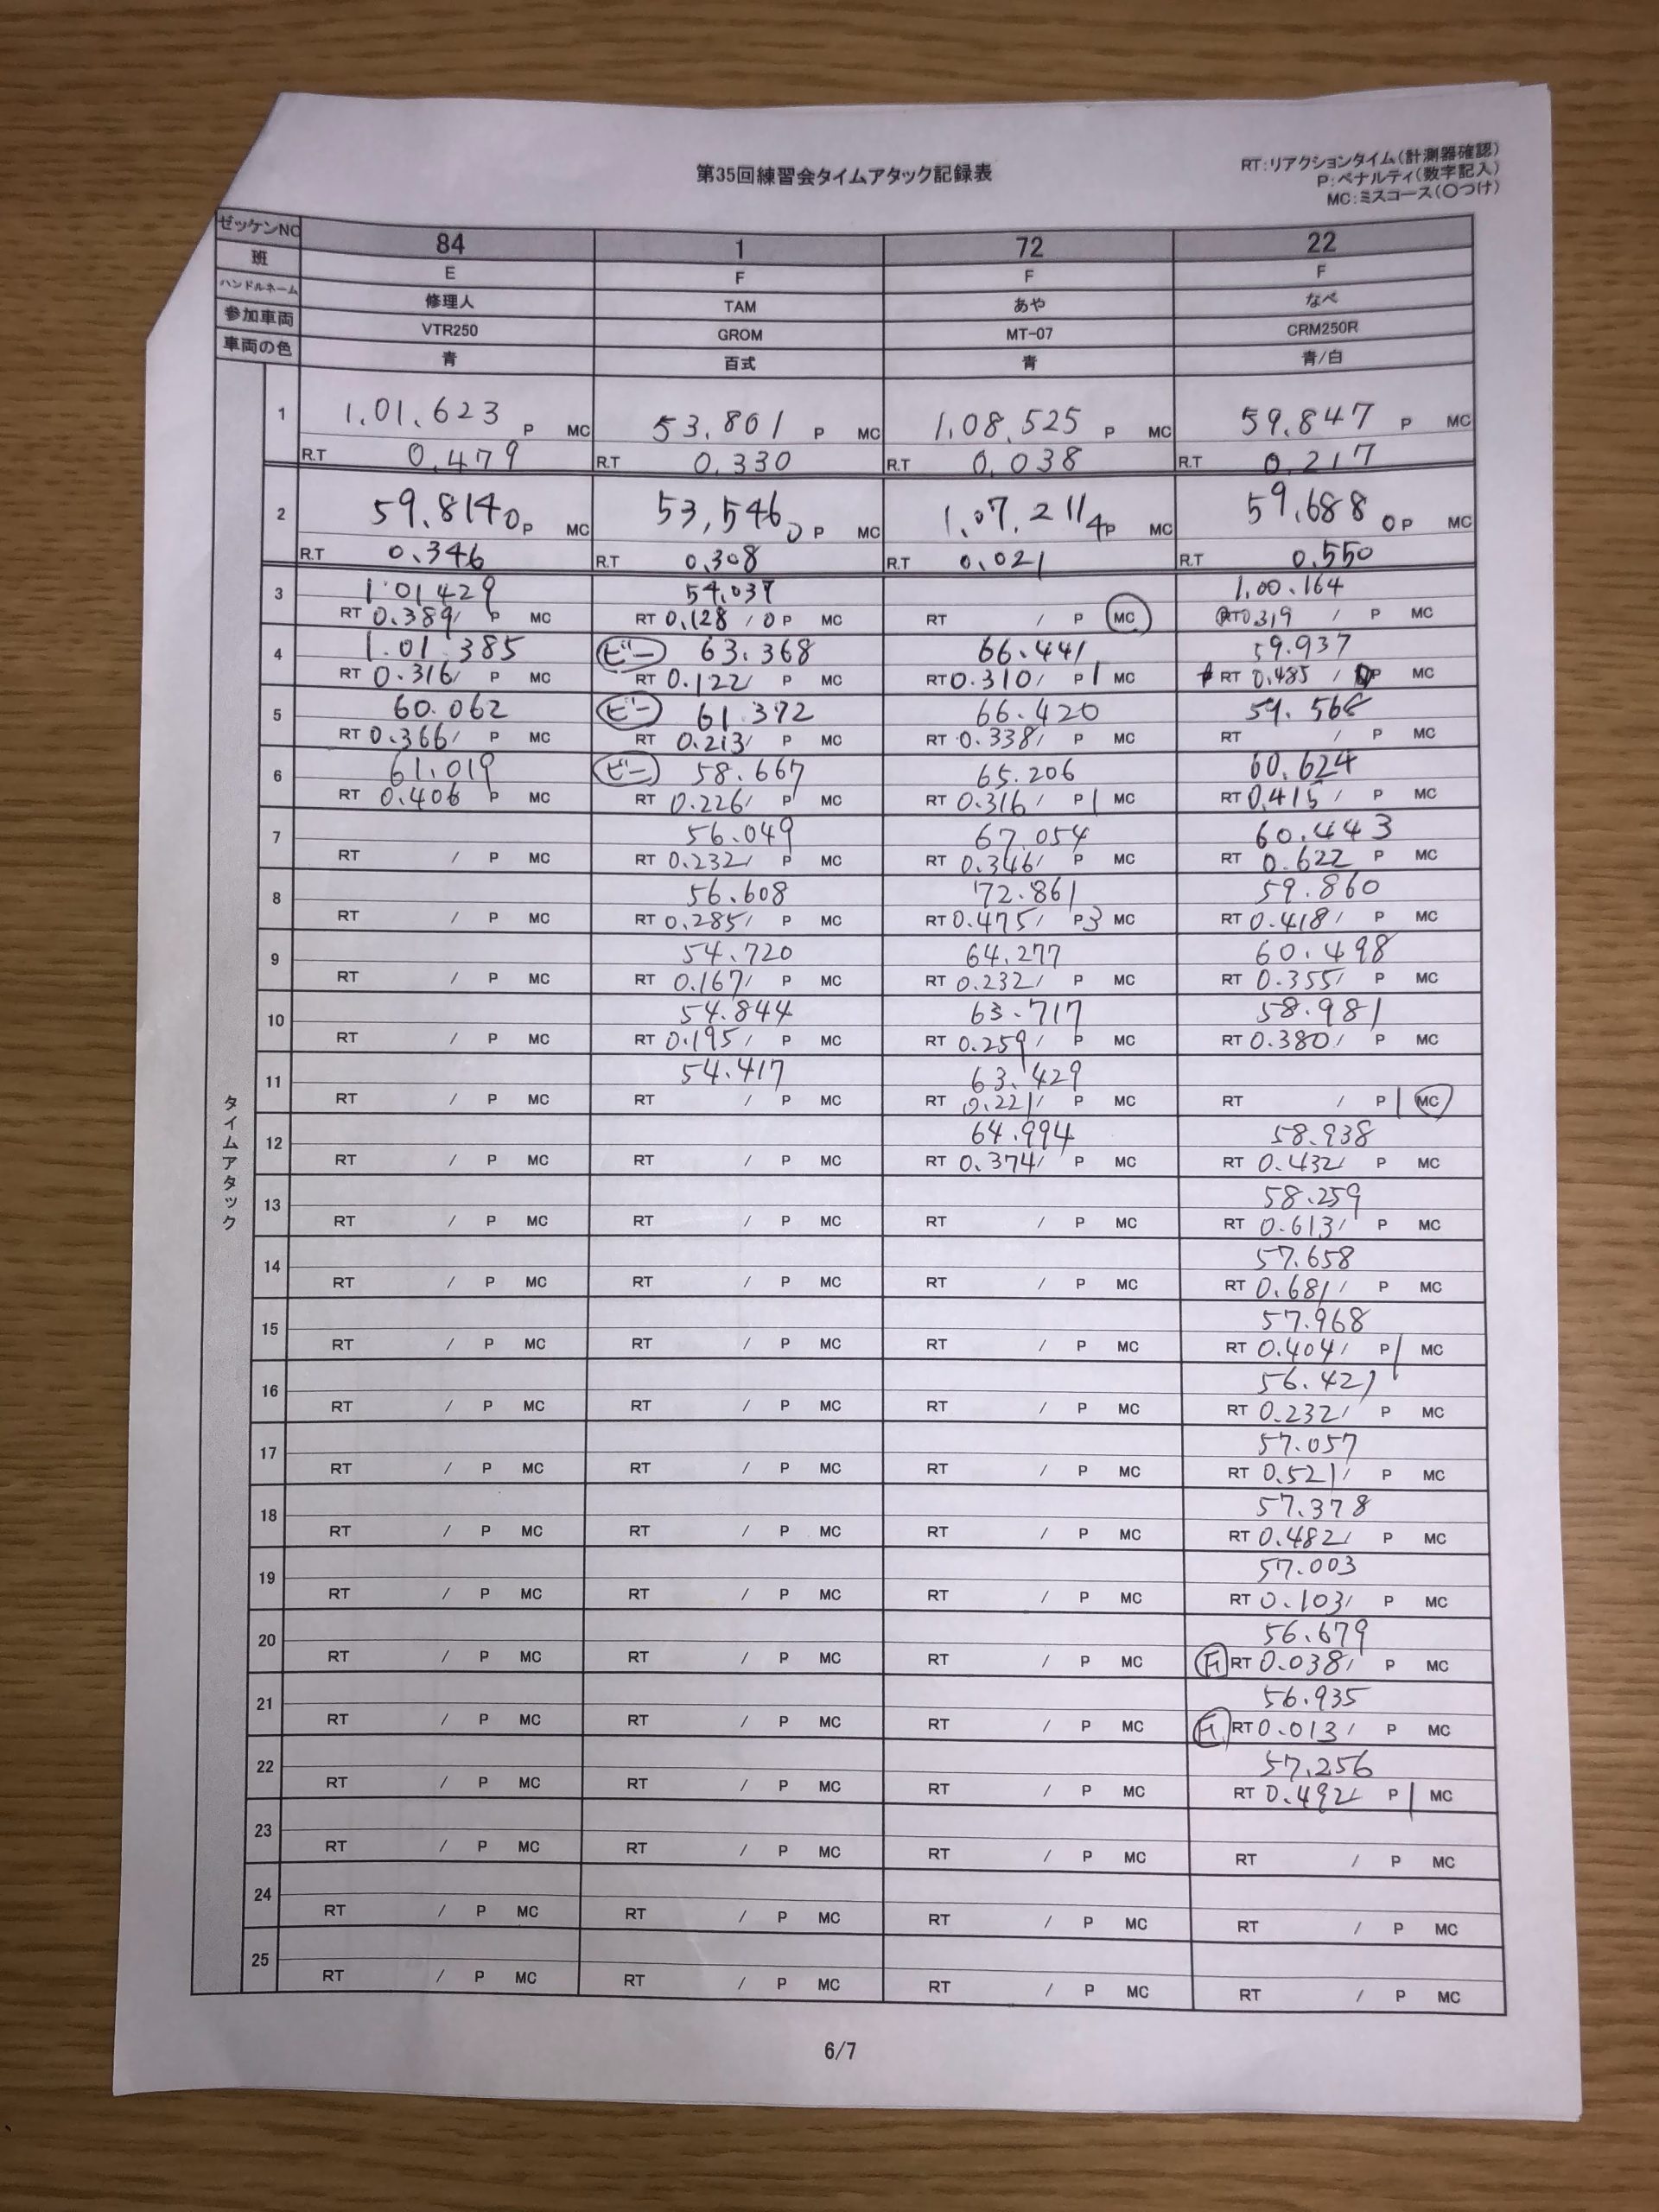 第35回練習会タイムアタック記録表
RT:リアクションタイム(計測器確認)
P:ペナルティ(数字記入)
MC:ミスコース(〇つけ)
ゼッケンNO 84 1 72 22
班 E F F F
ハンドルネーム 修理人 TAM あや なべ
参加車両 VTR250 GROM MT-07 CRM250R
車両の色 青 百式 青 青/白
タイムアタック
1 1.01.623 P MC 53.801 P MC 1.08.525 P MC 59.847 P MC
R.T 0.479 R.T 0.330 R.T 0.038 R.T 0.217
2 59.814 0P MC 53.546 0 P MC 1.07.211 4P MC 59.688 0P MC
R.T 0.346 R.T 0.308 R.T 0.021 R.T 0.550
3 1.01.429 54.037 1.00.164
RT 0.389/ P MC RT 0.128 / 0P MC RT / P MC RT 0.319 / P MC
4 1.01.385 ビー 63.368 66.441 59.937
RT 0.316/ P MC RT 0.122/ P MC RT 0.310/ P1 MC RT 0.485 / P MC
5 60.062 ビー 61.372 66.420 59.568
RT 0.366/ P MC RT 0.213/ P MC RT 0.338/ P MC RT / P MC
6 61.019 ビー 58.667 65.206 60.624
RT 0.406 P MC RT 0.226/ P MC RT 0.316/ P1 MC RT 0.415 / P MC
7 56.049 67.054 60.443
RT / P MC RT 0.232/ P MC RT 0.346/ P MC RT 0.622 P MC
8 56.608 72.861 59.860
RT / P MC RT 0.285/ P MC RT 0.475/ P3 MC RT 0.418/ P MC
9 54.720 64.277 60.498
RT / P MC RT 0.167/ P MC RT 0.232/ P MC RT 0.355/ P MC
10 54.844 63.717 58.981
RT / P MC RT 0.195/ P MC RT 0.259/ P MC RT 0.380/ P MC
11 54.417 63.429
RT / P MC RT / P MC RT 0.221/ P MC RT / P1 MC
12 64.994 58.938
RT / P MC RT / P MC RT 0.374/ P MC RT 0.432/ P MC
13 58.259
RT / P MC RT / P MC RT / P MC RT 0.613/ P MC
14 57.658
RT / P MC RT / P MC RT / P MC RT 0.681/ P MC
15 57.968
RT / P MC RT / P MC RT / P MC RT 0.404/ P1 MC
16 56.421
RT / P MC RT / P MC RT / P MC RT 0.232/ P MC
17 57.057
RT / P MC RT / P MC RT / P MC RT 0.521/ P MC
18 57.378
RT / P MC RT / P MC RT / P MC RT 0.482/ P MC
19 57.003
RT / P MC RT / P MC RT / P MC RT 0.103/ P MC
20 56.679
RT / P MC RT / P MC RT / P MC RT 0.038/ P MC
21 56.935
RT / P MC RT / P MC RT / P MC RT 0.013/ P MC
22 57.256
RT / P MC RT / P MC RT / P MC RT 0.492/ P1 MC
23
RT / P MC RT / P MC RT / P MC RT / P MC
24
RT / P MC RT / P MC RT / P MC RT / P MC
25
RT / P MC RT / P MC RT / P MC RT / P MC
6/7